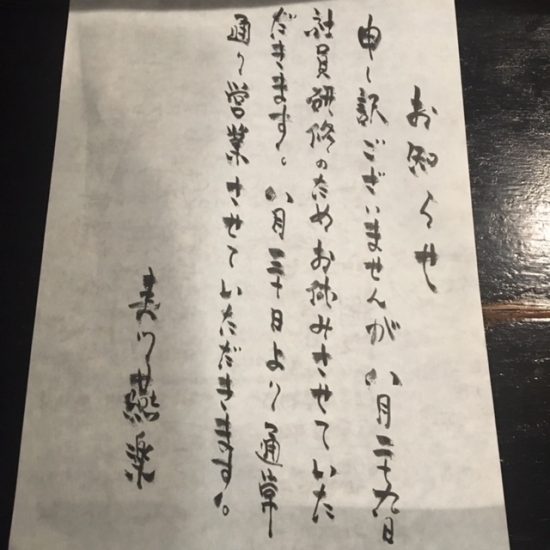 お知らせ
申し訳ございませんが八月二十九日
社員研修のためお休みさせていた
だきます。八月三十日より通常
通り営業させていただきます。